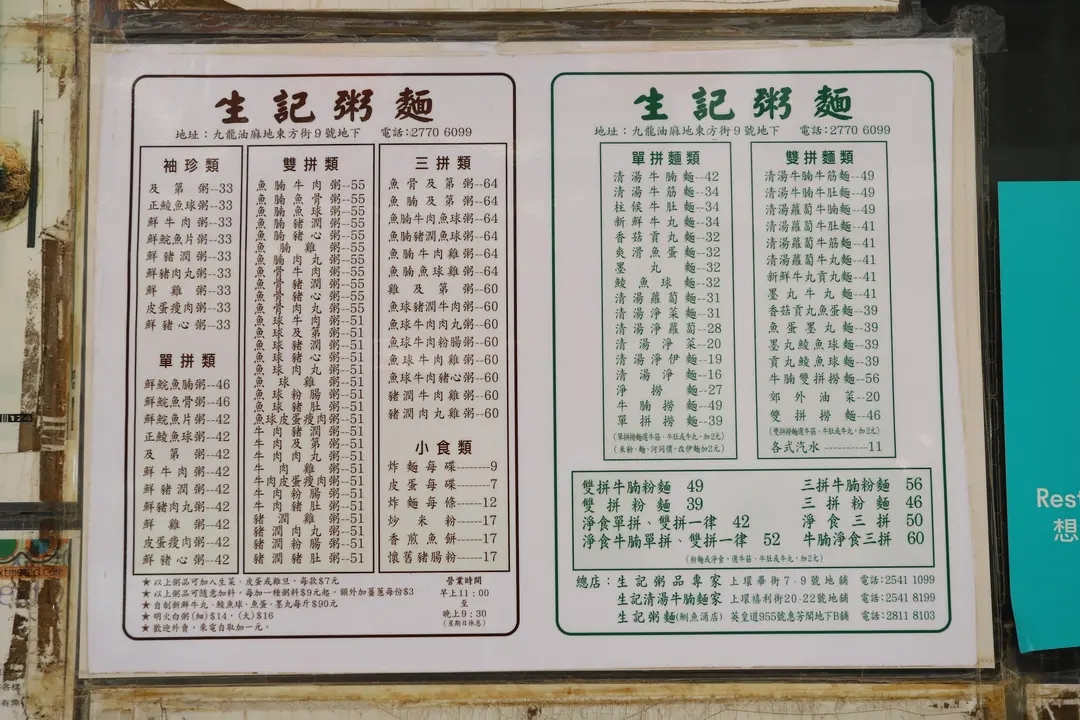 生記粥麵
地址：九龍油麻地東方街9號地下 電話:2770 6099
袖珍類
及第粥--33
正鯪魚球粥--33
鮮牛肉粥--33
鮮鯇魚片粥--33
鮮豬潤粥--33
鮮豬肉丸粥--33
鮮雞粥--33
皮蛋瘦肉粥--33
鮮豬心粥--33
單拼類
鮮鯇魚腩粥--46
鮮鯇魚骨粥--46
鮮鯇魚片粥--42
正鯪魚球粥--42
及第粥--42
鮮牛肉粥--42
鮮豬潤粥--42
鮮豬肉丸粥--42
鮮雞粥--42
皮蛋瘦肉粥--42
鮮豬心粥--42
雙拼類
魚腩牛肉粥--55
魚腩魚骨粥--55
魚腩魚球粥--55
魚腩豬潤粥--55
魚腩豬心粥--55
魚腩雞粥--55
魚腩肉丸粥--55
魚骨牛肉粥--55
魚骨豬潤粥--55
魚骨豬心粥--55
魚骨肉丸粥--55
魚球牛肉粥--51
魚球及第粥--51
魚球豬潤粥--51
魚球豬心粥--51
魚球肉丸粥--51
魚球雞粥--51
魚球粉腸粥--51
魚球豬肚粥--51
魚球皮蛋瘦肉粥--51
牛肉豬潤粥--51
牛肉及第粥--51
牛肉肉丸粥--51
牛肉雞粥--51
牛肉皮蛋瘦肉粥--51
牛肉粉腸粥--51
牛肉豬肚粥--51
豬潤雞粥--51
豬潤肉丸粥--51
豬潤粉腸粥--51
豬潤豬肚粥--51
三拼類
魚骨及第粥--64
魚腩及第粥--64
魚腩牛肉魚球粥--64
魚腩豬潤魚球粥--64
魚腩牛肉雞粥--64
魚腩魚球雞粥--64
雞及第粥--60
魚球豬潤牛肉粥--60
魚球牛肉肉丸粥--60
魚球牛肉粉腸粥--60
魚球牛肉雞粥--60
魚球牛肉豬心粥--60
豬潤牛肉雞粥--60
豬潤肉丸雞粥--60
小食類
炸麵每碟-------9
皮蛋每碟-------7
炸麵每條-----12
炒米粉-----17
香煎魚餅-----17
懷舊豬腸粉-----17
★以上粥品可加入生菜、皮蛋或雞旦，每款$7元
★以上粥品可隨意加料，每加一種粥料$9元起。額外加薑蔥每份$3
★自制新鮮牛丸、鯪魚球、魚蛋、墨丸每斤$90元
★明火白粥(細)$14，(大)$16
★歡迎外賣，來電自取加一元。
營業時間
早上11：00
至
晚上9：30
(星期日休息)
生記粥麵
地址：九龍油麻地東方街9號地下 電話:2770 6099
單拼麵類
清湯牛腩麵--42
清湯牛筋麵--34
柱侯牛肚麵--34
新鮮牛丸麵--34
香菇貢丸麵--32
爽滑魚蛋麵--32
墨丸麵--32
鯪魚球麵--32
清湯蘿蔔麵--31
清湯淨菜麵--31
清湯淨蘿蔔--28
清湯淨菜--20
清湯淨伊麵--19
清湯淨麵--16
淨撈麵--27
牛腩撈麵--49
單拼撈麵--39
(單拼撈麵選牛筋、牛肚或牛丸，加2元)
(米粉、麵、河同價，改伊麵加2元)
雙拼麵類
清湯牛腩牛筋麵--49
清湯牛腩牛肚麵--49
清湯蘿蔔牛腩麵--49
清湯蘿蔔牛肚麵--41
清湯蘿蔔牛筋麵--41
清湯蘿蔔牛丸麵--41
新鮮牛丸貢丸麵--41
墨丸牛丸麵--41
香菇貢丸魚蛋麵--39
魚蛋墨丸麵--39
墨丸鯪魚球麵--39
貢丸鯪魚球麵--39
牛腩雙拼撈麵--56
郊外油菜--20
雙拼撈麵--46
(雙拼撈麵選牛筋、牛肚或牛丸，加2元)
各式汽水----------11
雙拼牛腩粉麵 49 三拼牛腩粉麵 56
雙拼粉麵 39 三拼粉麵 46
淨食單拼、雙拼一律 42 淨食三拼 50
淨食牛腩單拼、雙拼一律 52 牛腩淨食三拼 60
(粉麵或淨食，選牛筋、牛肚或牛丸，加2元)
總店：生記粥品專家 上環畢街7-9號地舖 電話:2541 1099
生記清湯牛腩麵家 上環禧利街20-22號地舖 電話:2541 8199
生記粥麵(鰂魚涌店) 英皇道955號惠芳閣地下B舖 電話:2811 8103
Rest
想